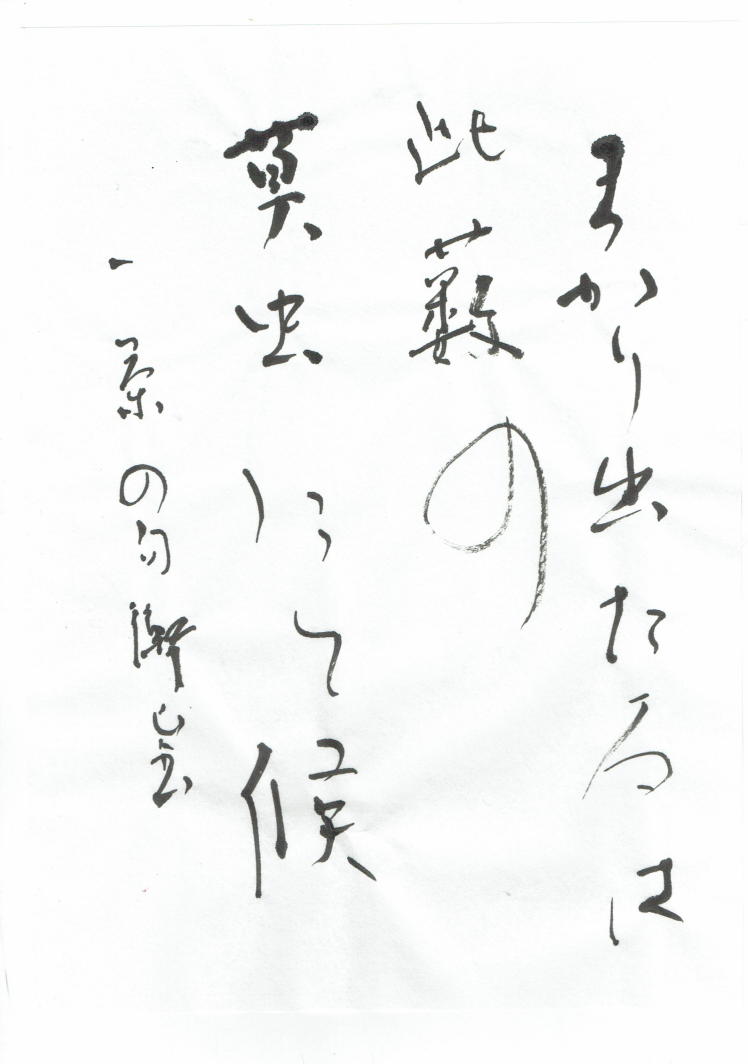 まかり出たるは
此藪の
蟇にて候
一茶の句